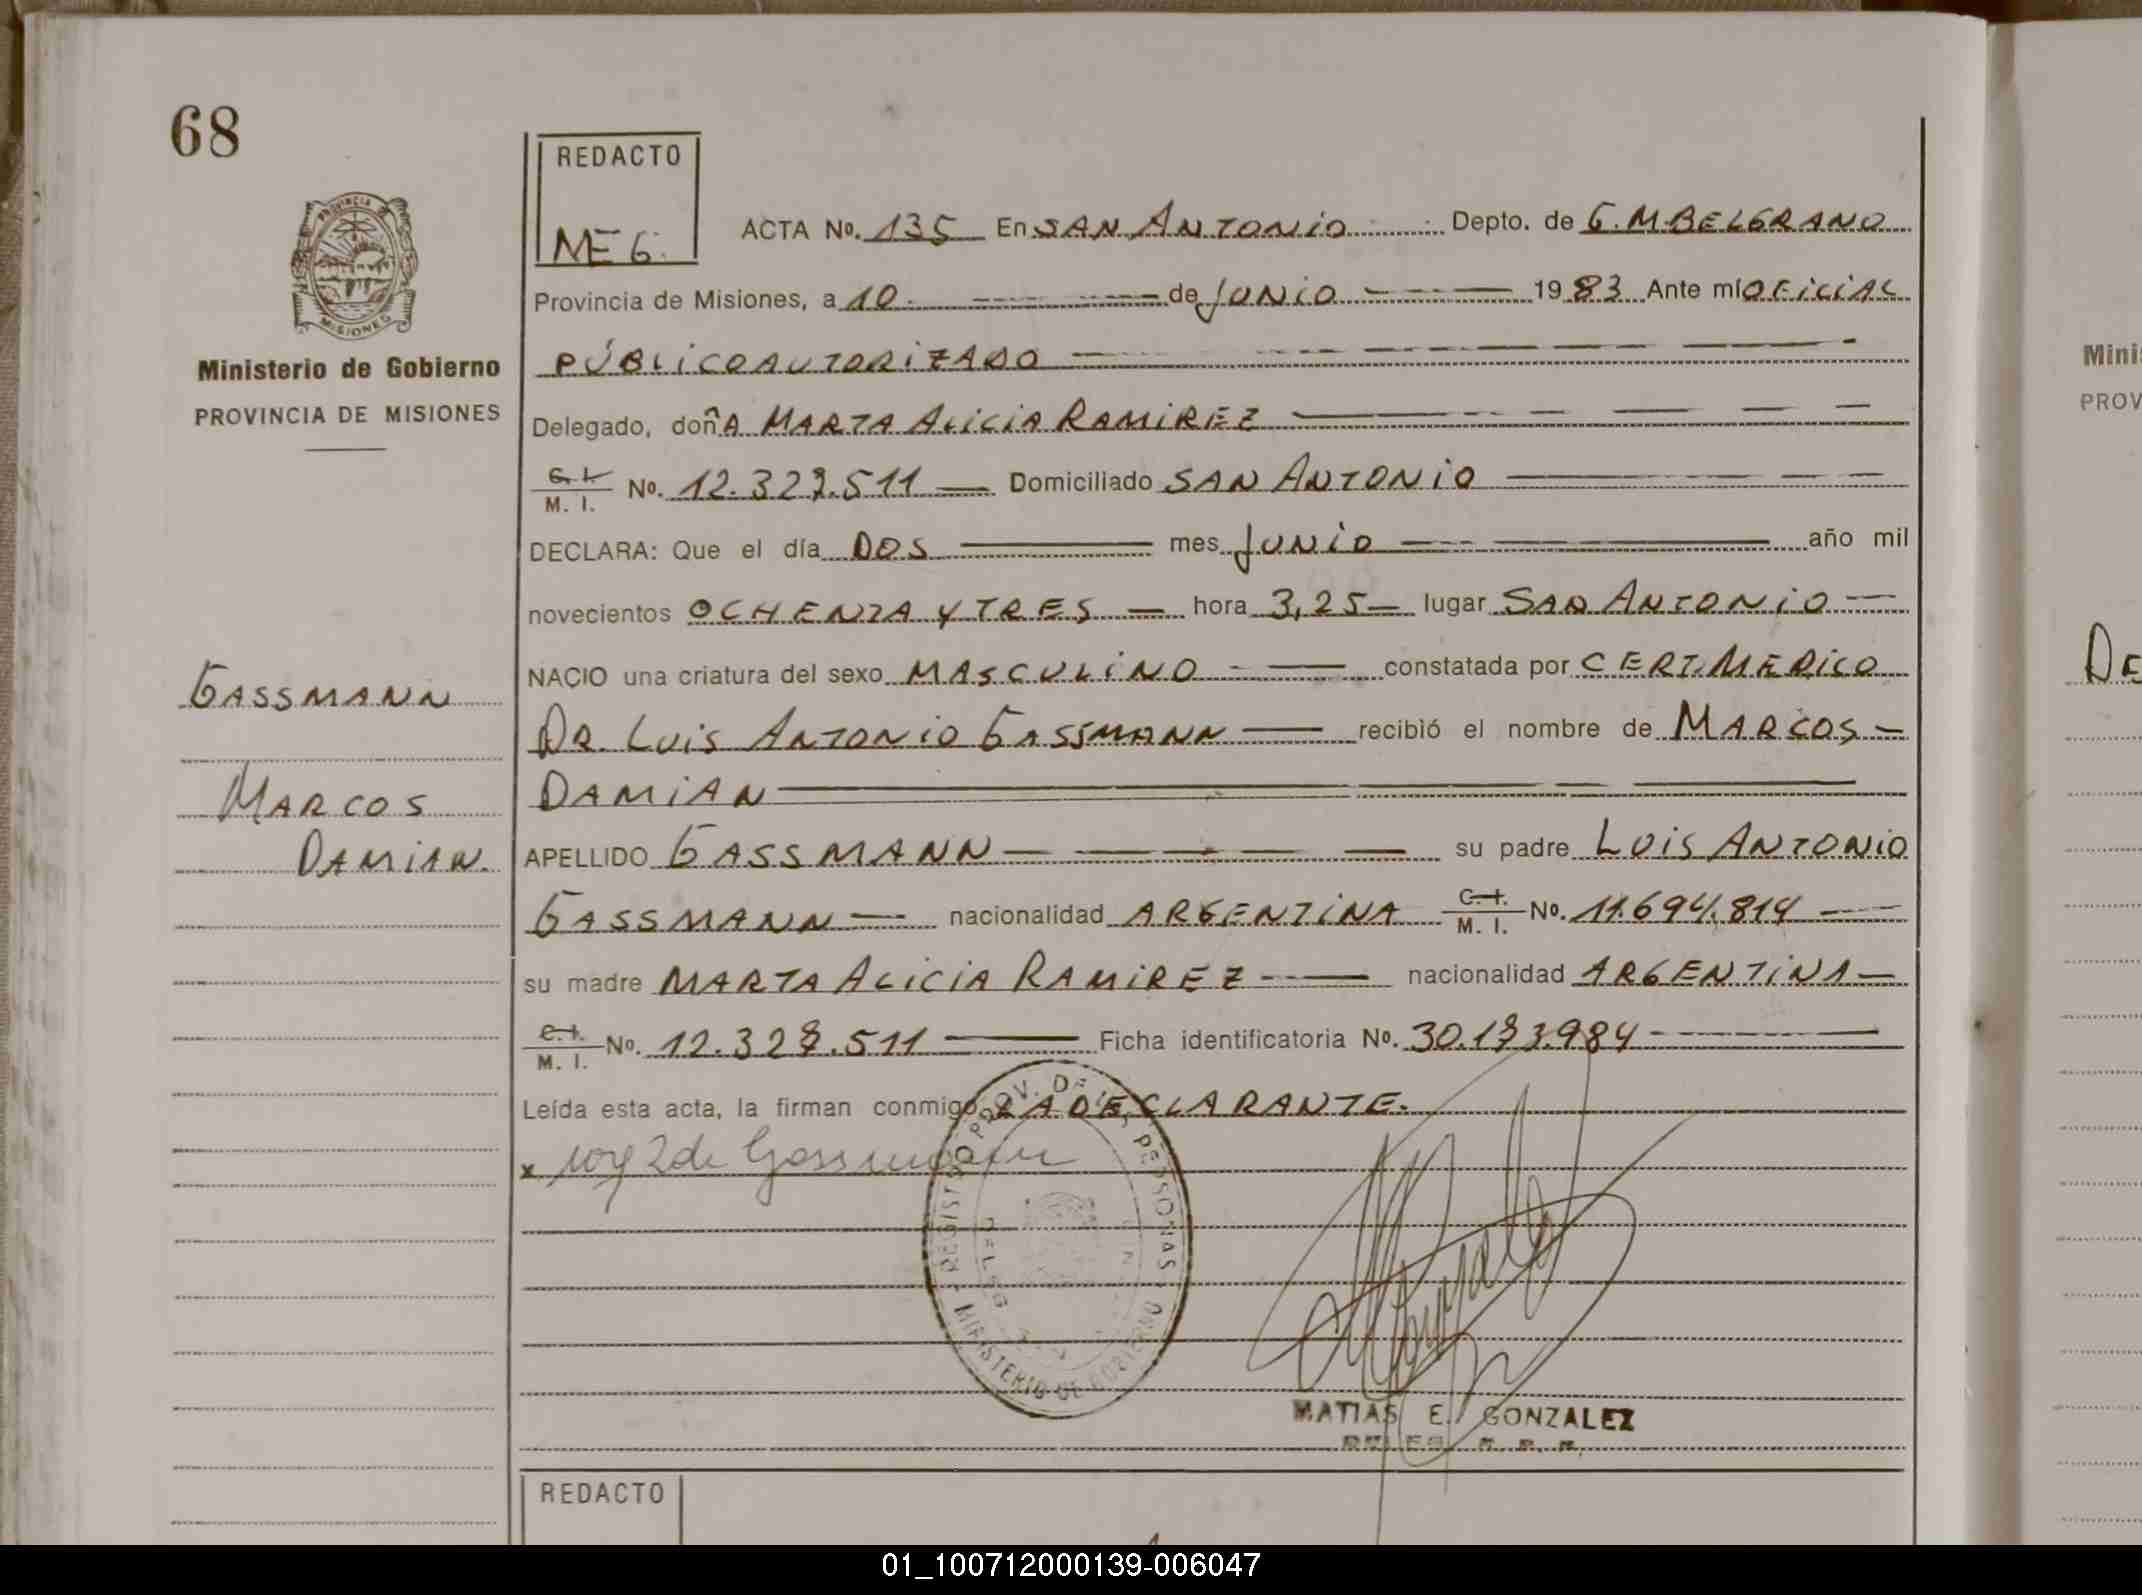 68
REDACTO
MEG.
PROVINCIA DE
MISIONES
Ministerio de Gobierno
PROVINCIA DE MISIONES
ACTA No. 135 En SAN ANTONIO Depto. de G.M.BELGRANO
Provincia de Misiones, a 10 de JUNIO 1983 Ante mí OFICIAL
PÚBLICO AUTORIZADO
Delegado, doñA MARTA ALICIA RAMIREZ
C. I. M. I. No. 12.327.511 Domiciliado SAN ANTONIO
DECLARA: Que el día DOS mes JUNIO año mil
novecientos OCHENTA Y TRES hora 3,25 lugar SAN ANTONIO
NACIO una criatura del sexo MASCULINO constatada por CERT. MEDICO
DR. LUIS ANTONIO GASSMANN recibió el nombre de MARCOS
DAMIAN
APELLIDO GASSMANN su padre LUIS ANTONIO
GASSMANN nacionalidad ARGENTINA C. I. M. I. No. 11.694.814
su madre MARTA ALICIA RAMIREZ nacionalidad ARGENTINA
C. I. M. I. No. 12.328.511 Ficha identificatoria No. 30.193.984
Leída esta acta, la firman conmigo LA DECLARANTE.
x de Gassmann
REGISTRO PROV. DE LAS PERSONAS
MINISTERIO DE GOBIERNO
MATIAS E. GONZALEZ
GASSMANN
MARCOS
DAMIAN.
REDACTO
Mini
PROV
DE
01_100712000139-006047